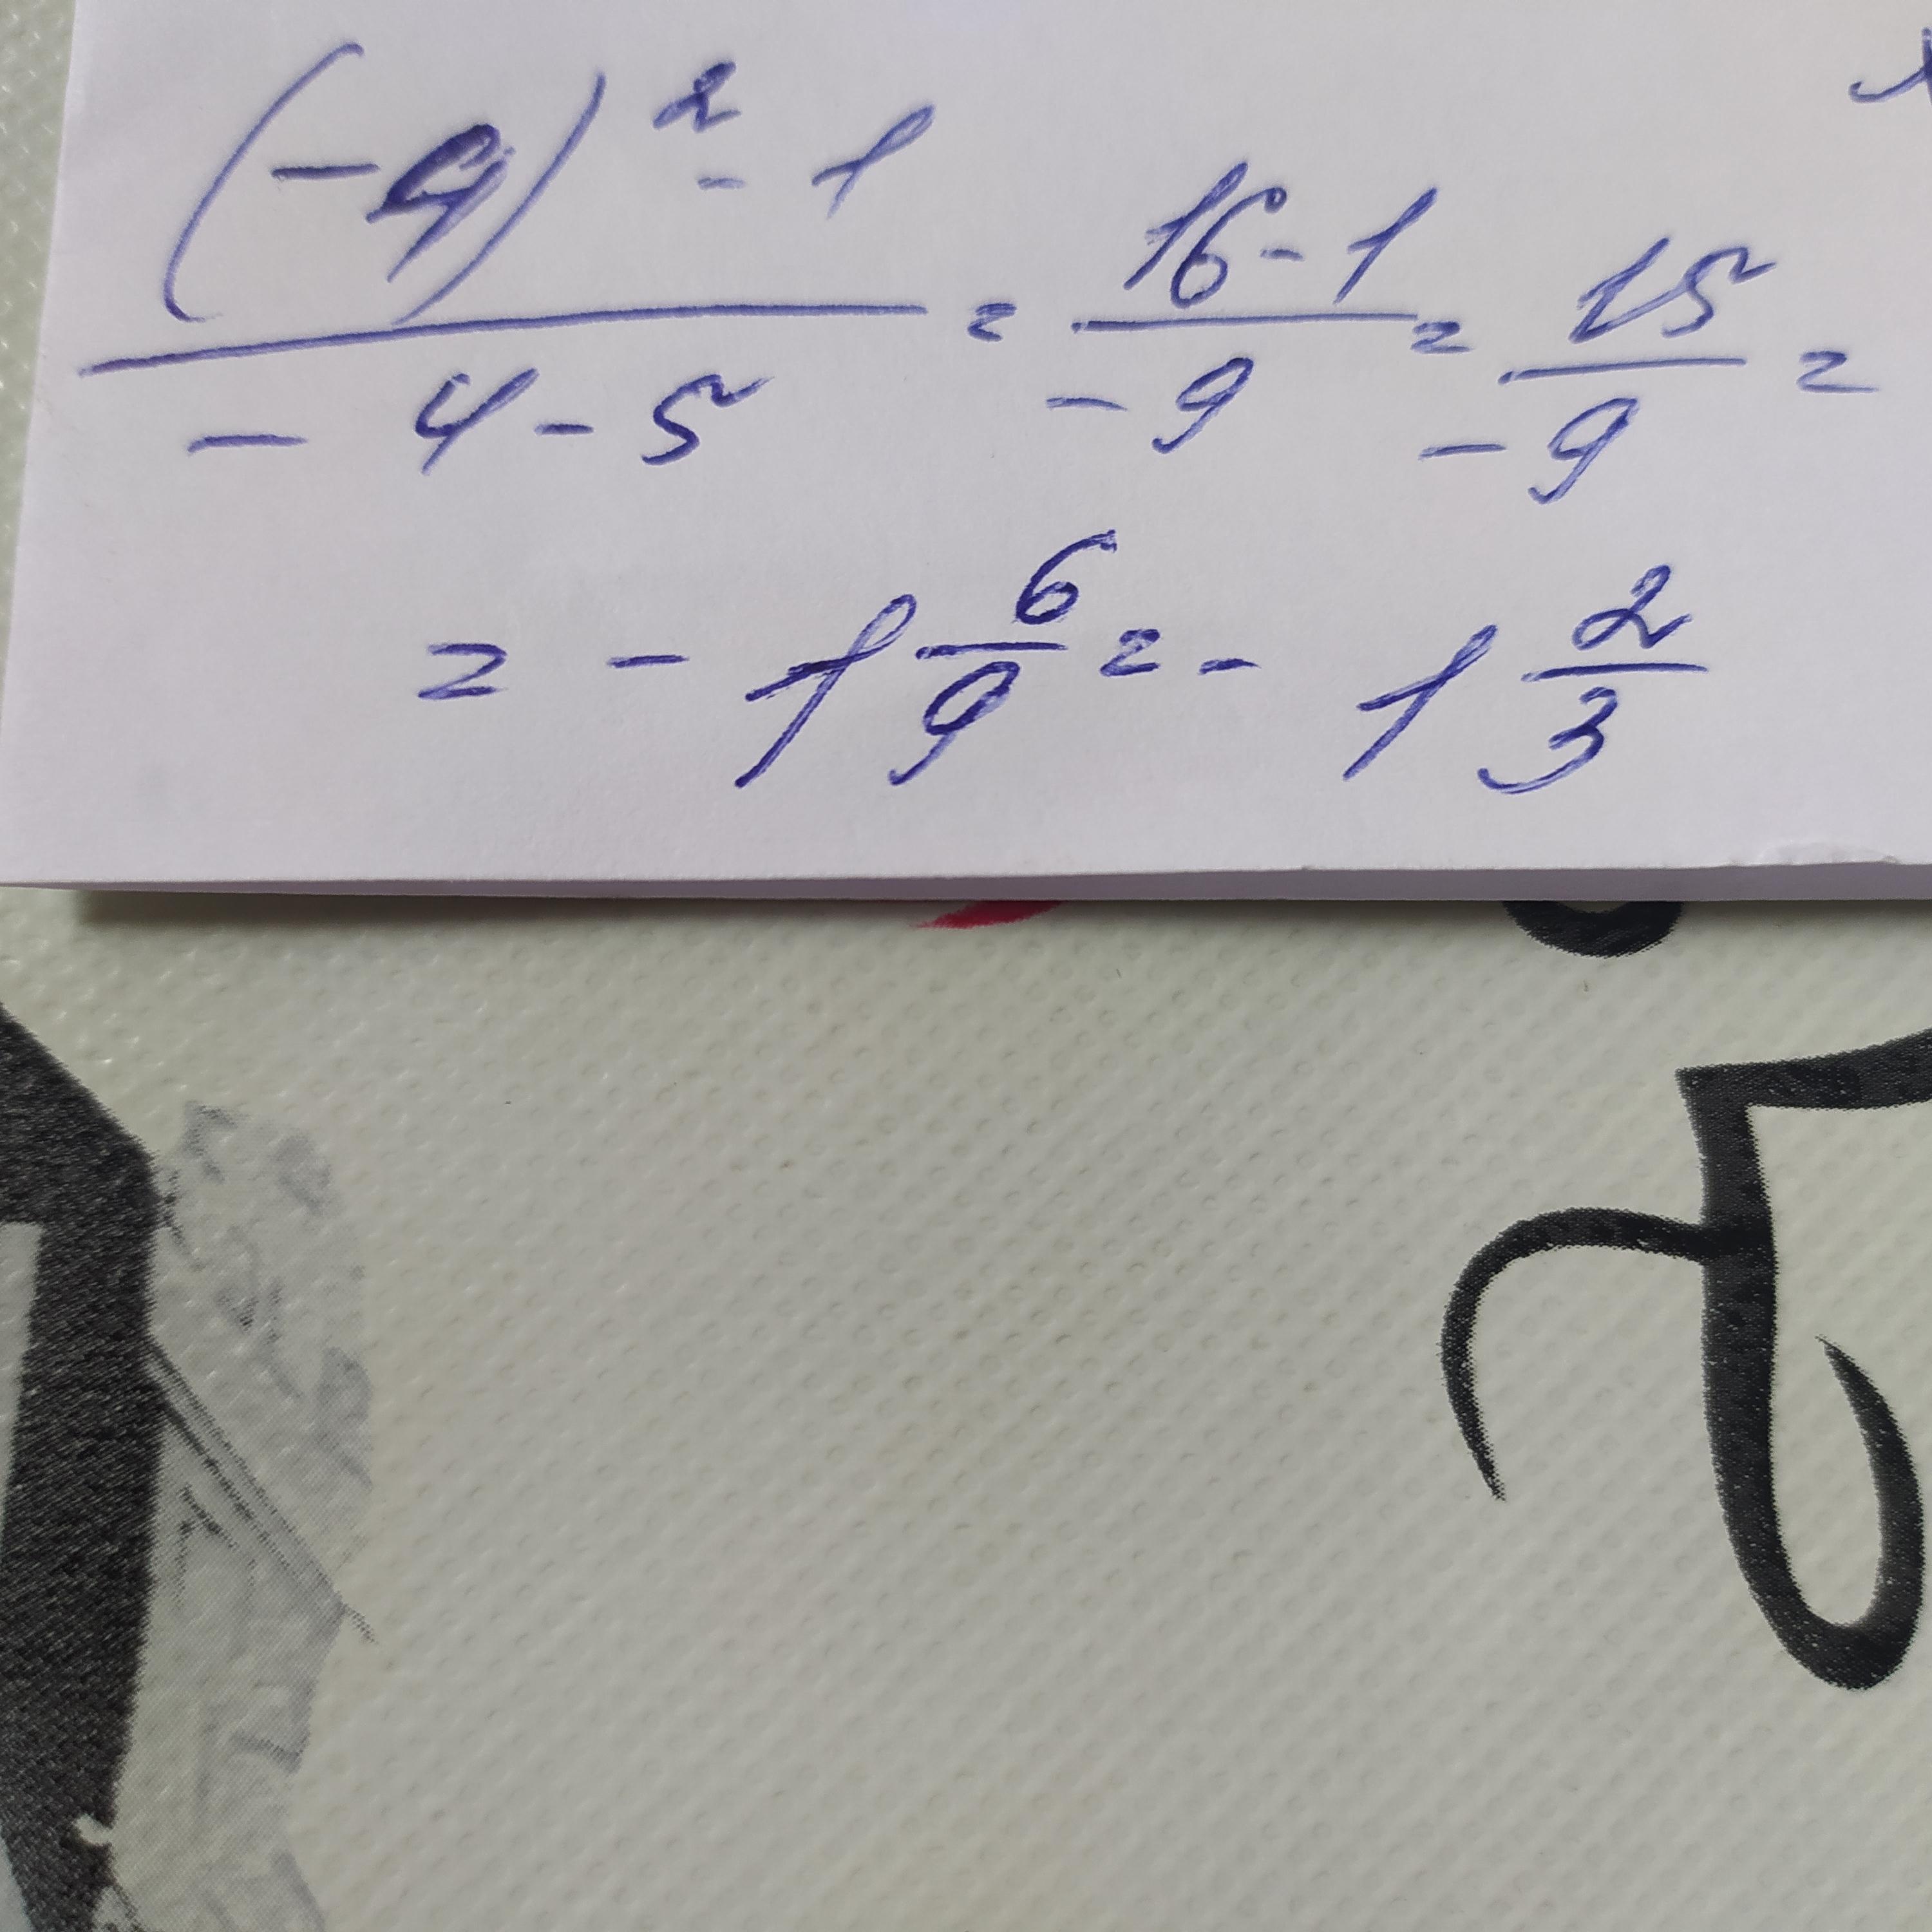 ((-4)² - 1)/(-4 - 5) = (16 - 1)/(-9) = 15/(-9) =
= - 1 6/9 = - 1 2/3